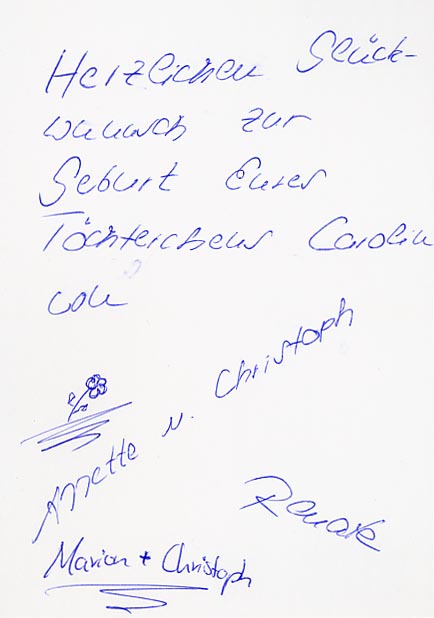 Herzlichen Glück-
wunsch zur
Geburt Eures
Töchterchens Carolin
von
Annette u. Christoph
Renate
Marion + Christoph